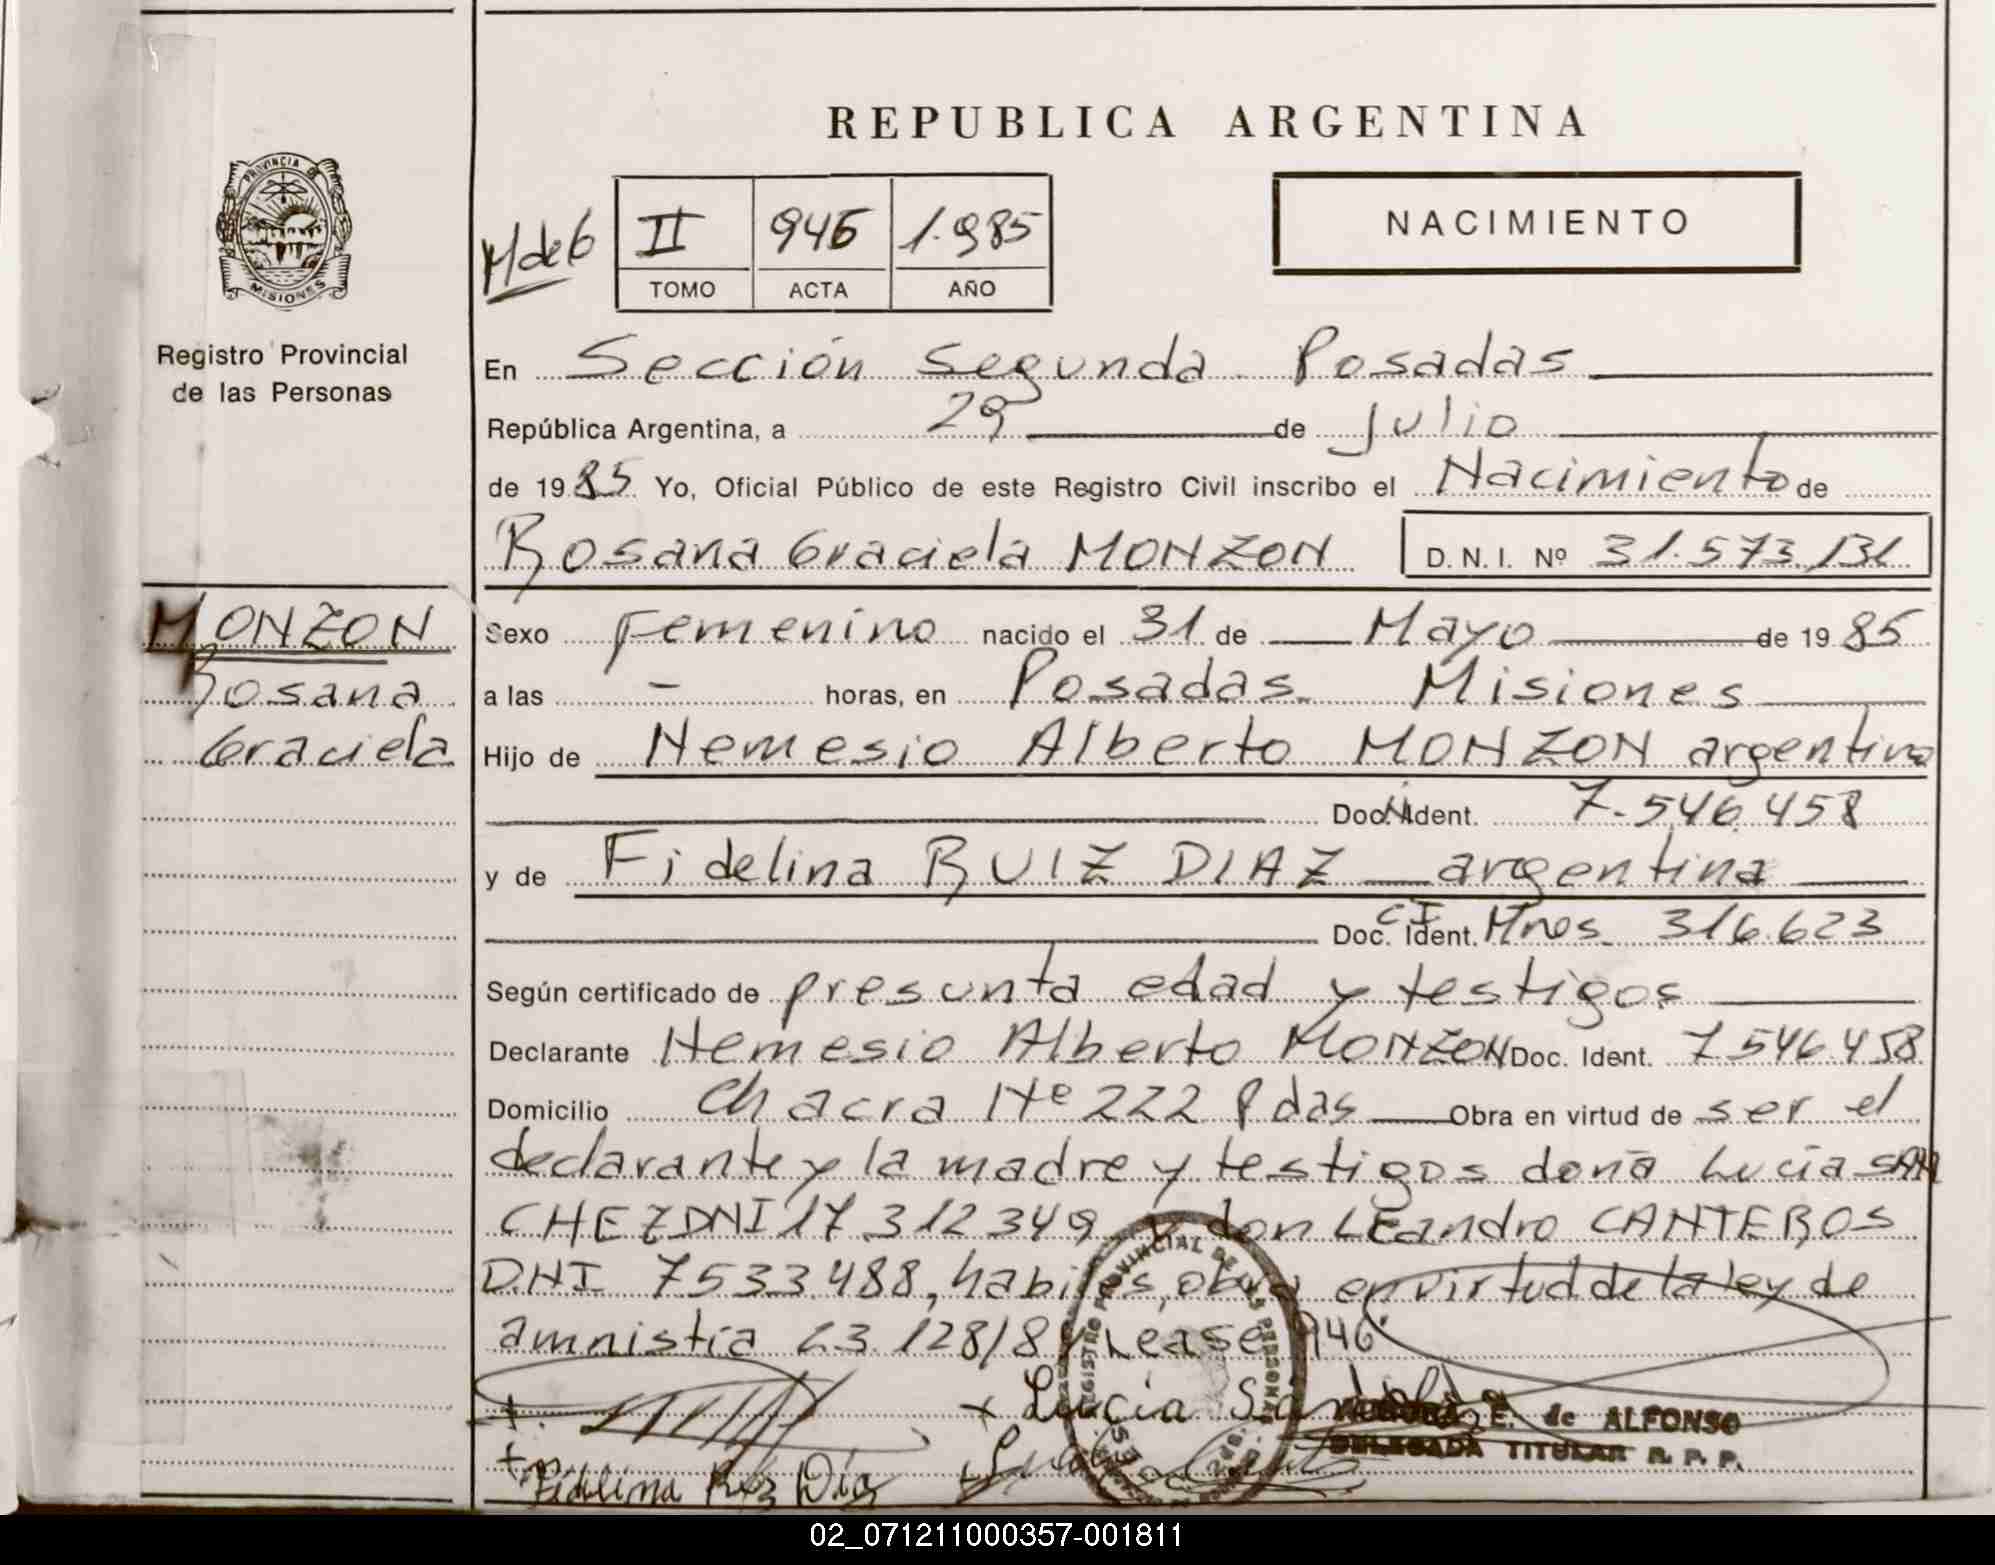 REPUBLICA ARGENTINA
PROVINCIA DE
MISIONES
Registro Provincial
de las Personas
M de 6
II 946 1.985
TOMO ACTA AÑO
NACIMIENTO
En Sección Segunda Posadas
República Argentina, a 29 de Julio
de 1985 Yo, Oficial Público de este Registro Civil inscribo el Nacimiento de
Rosana Graciela MONZON D. N. I. Nº 31.573.131
MONZON
Rosana
Graciela
Sexo Femenino nacido el 31 de Mayo de 1985
a las - horas, en Posadas Misiones
Hijo de Nemesio Alberto MONZON argentino
Doc. Ident. 7.546.458
y de Fidelina RUIZ DIAZ argentina
Doc. Ident. C I Mnes. 316.623
Según certificado de presunta edad y testigos
Declarante Nemesio Alberto MONZON Doc. Ident. 7.546.458
Domicilio Chacra Nº 222 Pdas Obra en virtud de ser el
declarante y la madre y testigos doña Lucía SAN
CHEZ DNI 17 312 349 y don Leandro CANTEROS
DNI 7533.488, habiles, obra en virtud de la ley de
amnistía 23.128/84 Lease 946
+ Lucia
E. de ALFONSO
DELEGADA TITULAR R. P. P.
+ Fidelina Ruz Diaz
REGISTRO PROVINCIAL DE LAS PERSONAS
02_071211000357-001811